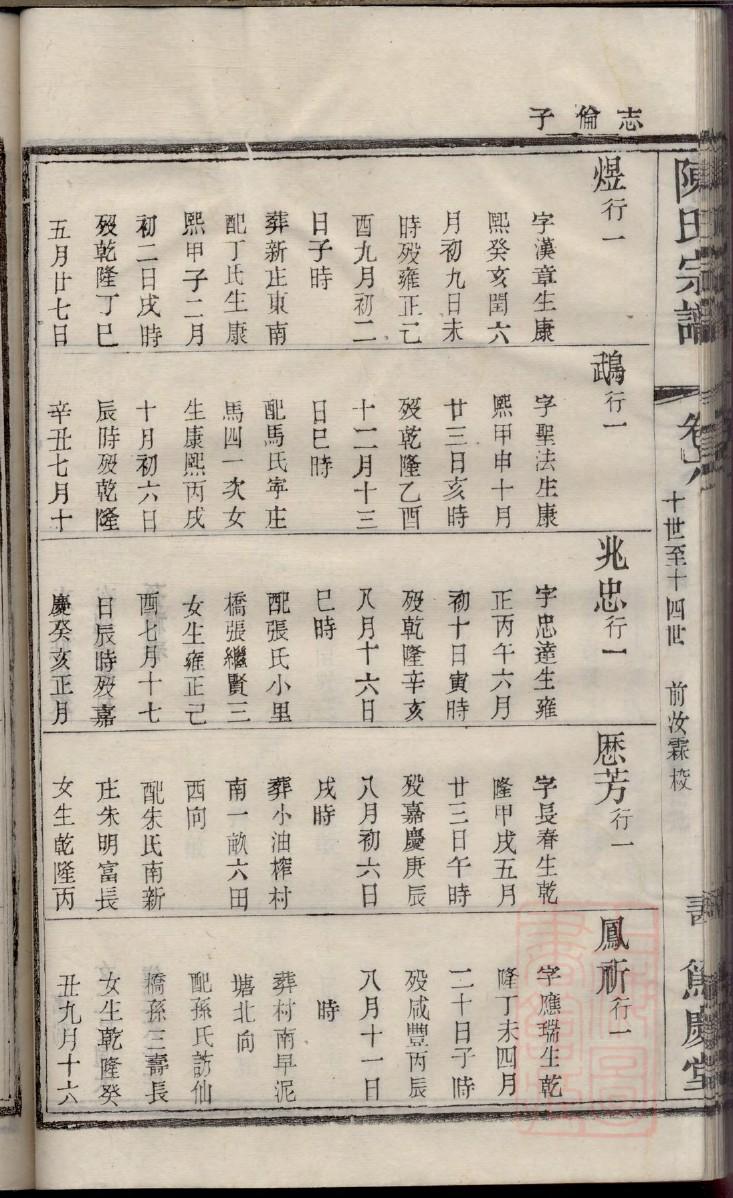 志倫子
陳氏宗譜
卷六
十世至十四世
前汝霖校
篤慶堂
煜行一
字漢章生康
熙癸亥閏六
月初九日未
時歿雍正己
酉九月初二
日子時
葬新庄東南
配丁氏生康
熙甲子二月
初二日戌時
歿乾隆丁巳
五月廿七日
鵡行一
字聖法生康
熙甲申十月
廿三日亥時
歿乾隆乙酉
十二月十三
日巳時
配馬氏寕庄
馬四一次女
生康熙丙戌
十月初六日
辰時歿乾隆
辛丑七月十
兆忠行一
字忠達生雍
正丙午六月
初十日寅時
歿乾隆辛亥
八月十六日
巳時
配張氏小里
橋張繼賢三
女生雍正己
酉七月十七
日辰時歿嘉
慶癸亥正月
厯芳行一
字長春生乾
隆甲戌五月
廿三日午時
歿嘉慶庚辰
八月初六日
戌時
葬小油榨村
南一畝六田
西向
配朱氏南新
庄朱明富長
女生乾隆丙
鳳祈行一
字應瑞生乾
隆丁未四月
二十日子時
歿咸豐丙辰
八月十一日
時
葬村南早泥
塘北向
配孫氏訪仙
橋孫三壽長
女生乾隆癸
丑九月十六